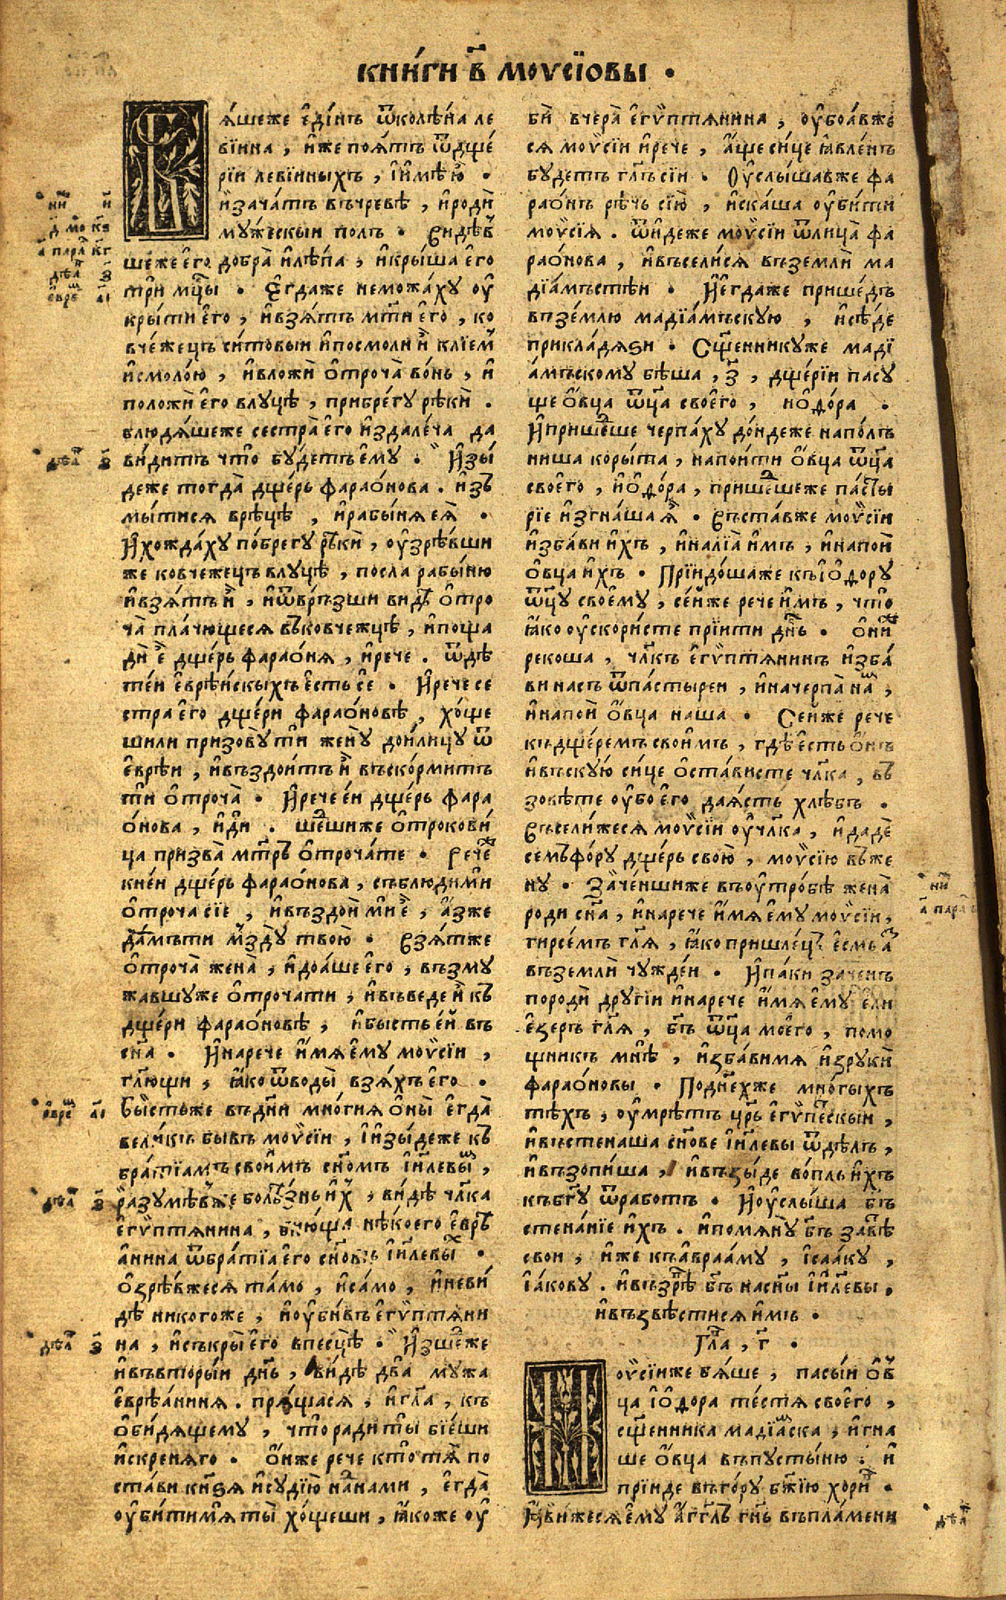 книги в҃ моѵсіовы .
яшеже едінъ ѿколѣна ле
віина , иже поятъ ѿдще
рїи левіинныхъ , їимѣ ю .
изачатъ въчревѣ , ироди
мужескыи полъ . видѣв
шеже его добра илѣпа , икрыша его
три мц҃ы . Егдаже неможаху оу
крыти его , ивзятъ мт҃и его , ко
вчежецъ ситовыи ипосмоли и клїем
исмолою , ивложи отроча вонь , и
положи его влуцѣ , прибрегу рѣки .
блюдяшеже сестра его издалеча да
видитъ что будетъ ему . Изы
деже тогда дщерь фараонова . изъ
мытися врѣцѣ , ирабыня ея .
Ихождаху побрегу рѣки , оузрѣвши
же ковчежецъ влуцѣ , посла рабыню
ивзятъ и , иѿвръзши видѣ отро
ча плачющеся въковчежцѣ , ипоща
дѣ е дщерь фараоня , ирече . ѿдѣ
теи еврѣискыхъ есть се . Ирече се
стра его дщери фараоновѣ , хоще
шили призову ти жену доилицу ѿ
евреи , ивъздоитъ и въскормитъ
ти отроча . Ирече еи дщерь фара
онова , иди . шедшиже отрокови
ца призва мт҃рь отрочате . Рече
кнеи дщерь фараонова , съблюдими
отроча сїе , ивъздои мне , азже
дамъти мзду твою . Взятже
отроча жена , идоаше его , възму
жавшуже отрочати , ивъведе и къ
дщери фараоновѣ , ибысть еи въ
сн҃а . Инарече имя ему моѵсїи ,
гл҃ющи , яко ѿводы взяхъ его .
Бысть же въдни многия оны егда
великъ бывъ моѵсїи , їизыдеже къ
братїамъ своимъ сн҃омъ їил҃евы ,
разумѣвже болѣзнь их , видѣ чл҃ка
егѵптянина , биюща нѣкоего еврѣ
анина ѿбратїа его сн҃овъ їил҃евы .
озрѣвжеся тамо , исамо , иневи
дѣ никогоже , иоубивъ егѵптяни
на , исъкры его впесцѣ . Изшедже
ивъвторыи дн҃ь , видѣ два мужа
еврѣаниня . прящася , игл҃а , къ
обидящему , что ради ты бїеши
искреняго . онже рече кто тя по
стави кнѕя исудїю нанами , егда
оубитимя ты хощеши , якоже оу
би вчера егѵптянина , оубоавже
ся моѵсїи ирече , аще сице явленъ
будетъ гл҃ъ сїи . Оуслышавже фа
раонъ рѣчь сїю , искаша оубити
моѵсїя . ѿидеже моѵсїи ѿлица фа
раонова , ивъселися въземли ма
дїамъстѣи . Иегдаже пришедъ
вземлю мадїамъскую , исѣде
прикладяѕи . Сщ҃енникуже мадї
амъскому бѣша , з҃ , дщерїи пасу
ще овца ѿца своего , иоѳора .
Ипришедше черпаху дондеже наполъ
ниша корыта , напоити овца ѿца
своего , иоѳора , пришедшеже пасты
рїе изгнаша я . Въставже моѵсїи
избави ихъ , иналїа имъ , инапои
овца ихъ . Прїидошаже къїоѳору
ѿцу своему , сеиже рече имъ , что
яко оускористе прїити дн҃ь . они
рекоша , чл҃къ егѵптянинъ изба
ви насъ ѿпастыреи , иначерпа на ,
инапои овца наша . Сеиже рече
къдщеремъ своимъ , гдѣ есть онъ
ивъскую сице остависте чл҃ка , въ
зовѣте оубо его даясть хлѣбъ .
Въселижеся моѵсїи оучл҃ка , идаде
семъфору дщерь свою , моѵсїю въже
ну . Зачѣншиже въоутробѣ жена
роди сн҃а , инарече имя ему моѵсїи ,
гирсемъ гл҃я , яко пришлецъ есмь а
въземли чуждеи . Ипаки заченъ
породи другїи инарече имя ему ели
езеръ гл҃я , бг҃ъ ѿца моего , помо
щникъ мнѣ , избавимя изруки
фараоновы . Поднехже многыхъ
тѣхъ , оумрѣтъ цр҃ь егѵпескыи ,
ивъстенаша сн҃ове їил҃евы ѿдѣлъ ,
ивъзопиша , ивъзыде вопль ихъ
къбг҃у ѿработъ . Иоуслыша бг҃ъ
стенанїе ихъ . ипомяну бг҃ъ завѣ
свои , иже къаврааму , ісааку ,
їакову . ивъзрѣ бг҃ъ насн҃ы їил҃евы .
ивъзвѣстися имъ .
Гл҃а , г҃ .
оѵсїиже бяше , пасыи ов
ца їоѳора тестя своего ,
сщ҃енника мадїаска , игна
ше овца въпустыню . и
прїиде въгору бж҃їю хори .
Ивижеся ему агг҃лъ гн҃ь въпламени